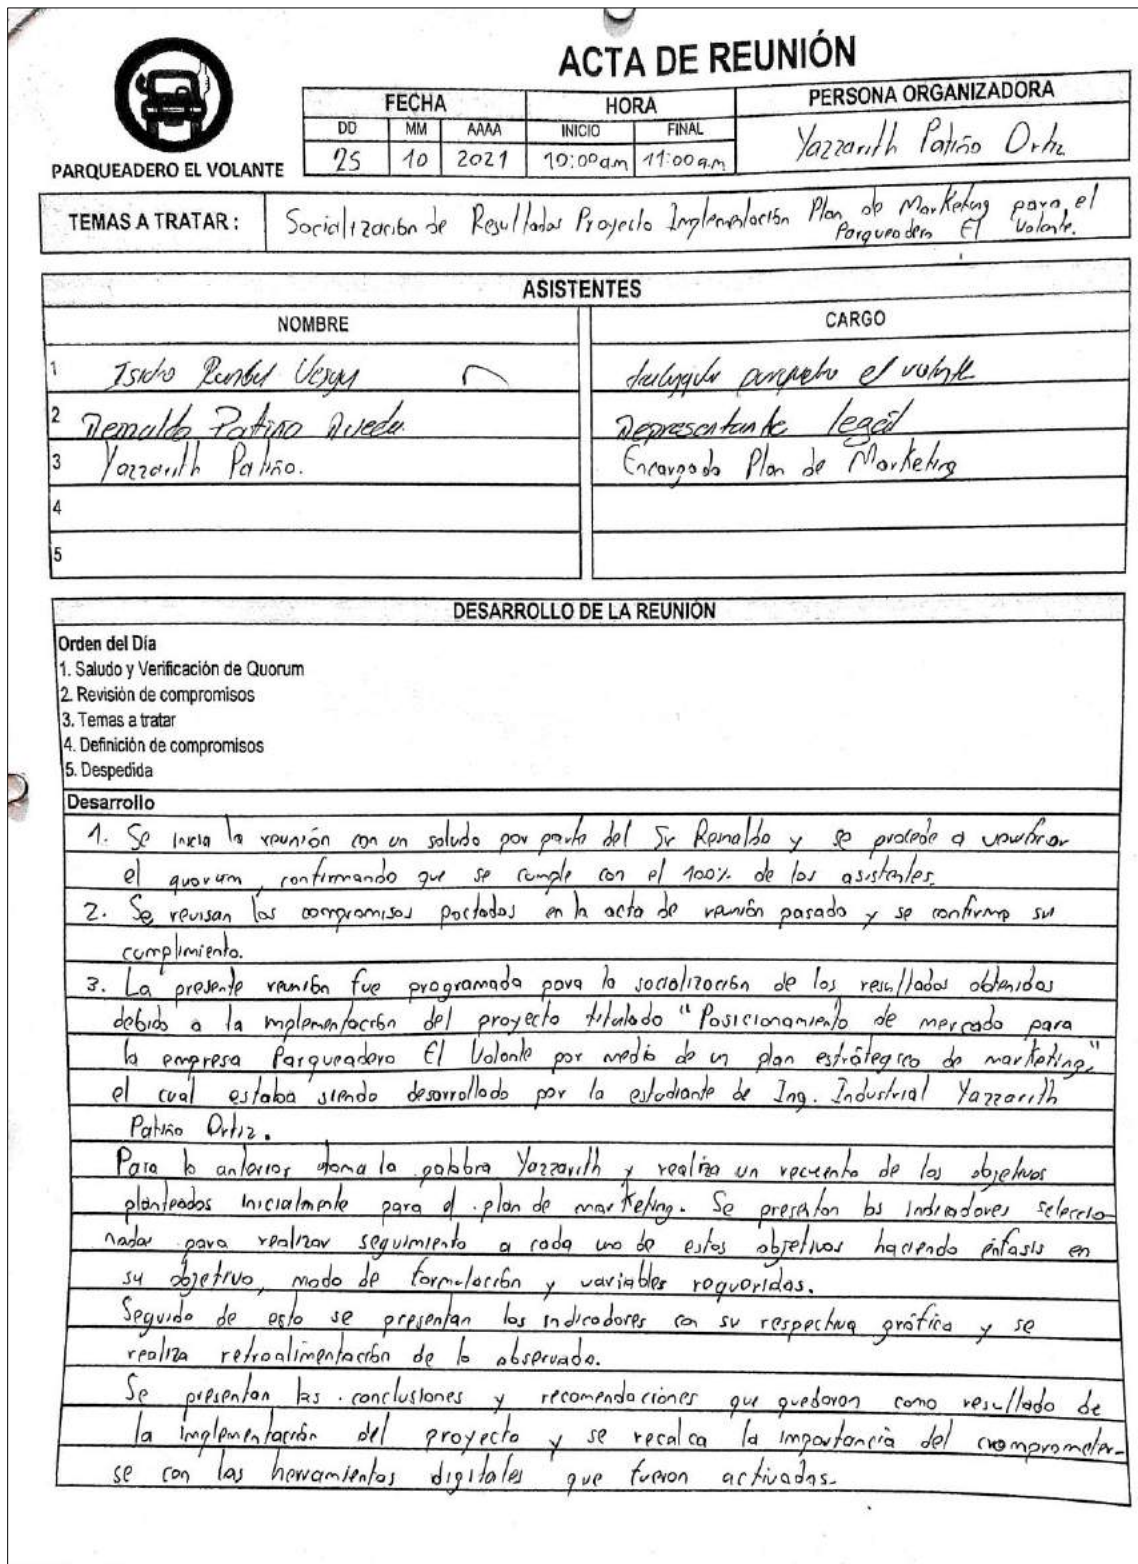 ACTA DE REUNIÓN
PARQUEADERO EL VOLANTE
FECHA HORA PERSONA ORGANIZADORA
DD MM AAAA INICIO FINAL
25 10 2021 10:00am 11:00a.m Yazzarith Patiño Ortiz
TEMAS A TRATAR: Socialización de Resultados Proyecto Implementación Plan de Marketing para el
Parqueadero El Volante.
ASISTENTES
NOMBRE CARGO
1 Isidro el volante
2 Reinaldo Patiño Rueda Representante legal
3 Yazzarith Patiño. Encargada Plan de Marketing
4
5
DESARROLLO DE LA REUNIÓN
Orden del Día
1. Saludo y Verificación de Quorum
2. Revisión de compromisos
3. Temas a tratar
4. Definición de compromisos
5. Despedida
Desarrollo
1. Se inicia la reunión con un saludo por parte del Sr Reinaldo y se procede a verificar
el quorum, confirmando que se cumple con el 100% de los asistentes.
2. Se revisan los compromisos pactados en la acta de reunión pasada y se confirma su
cumplimiento.
3. La presente reunión fue programada para la socialización de los resultados obtenidos
debido a la implementación del proyecto titulado "Posicionamiento de mercado para
la empresa Parqueadero El Volante por medio de un plan estrátegico de marketing,"
el cual estaba siendo desarrollado por la estudiante de Ing. Industrial Yazzarith
Patiño Ortiz.
Para lo anterior toma la palabra Yazzarith y realiza un recuento de los objetivos
planteados inicialmente para el plan de marketing. Se presentan los indicadores seleccio-
nados para realizar seguimiento a cada uno de estos objetivos haciendo énfasis en
su objetivo, modo de formulación y variables requeridas.
Seguido de esto se presentan los indicadores con su respectiva gráfica y se
realiza retroalimentación de lo observado.
Se presentan las conclusiones y recomendaciones que quedaron como resultado de
la implementación del proyecto y se recalca la importancia del cromprometer-
se con las herramientas digitales que fueron activadas.